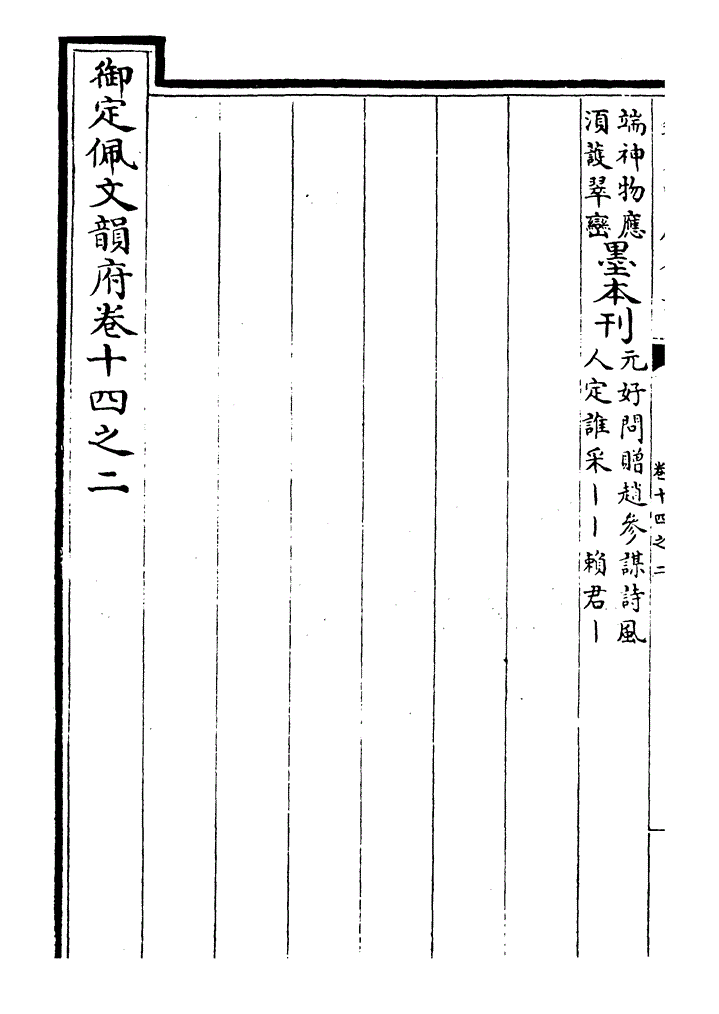 卷十四之二
端神物應
須護翠巒
墨本刊
元好問贈趙參謀詩風
人定誰采丨丨賴君丨
御定佩文韻府卷十四之二